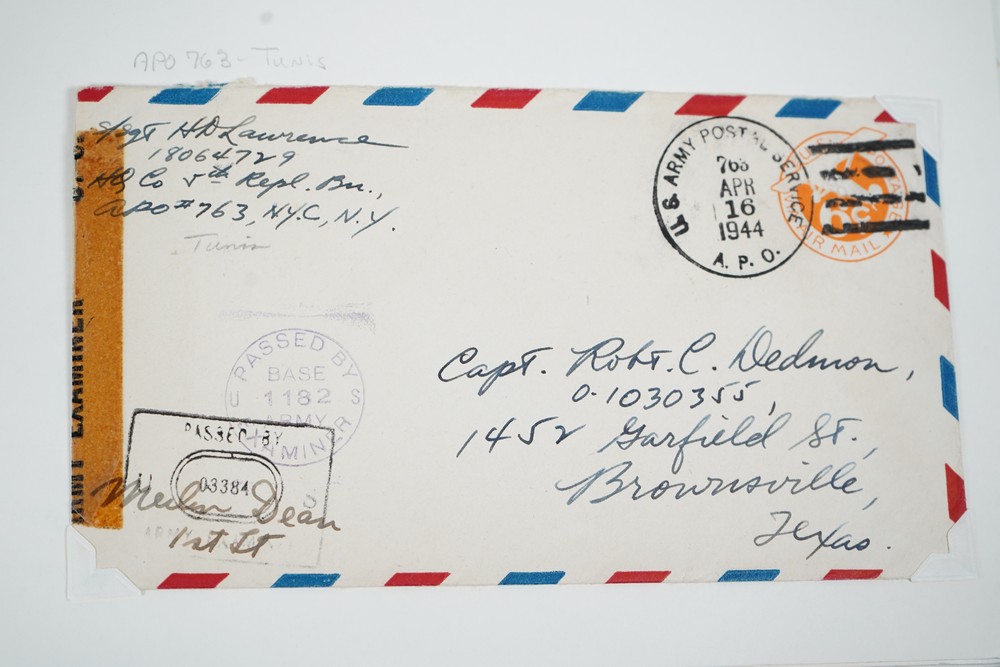 APO 763 - TUNIS
S/Sgt HD Lawrence
18064729
HQ Co 5th Repl. Bn.,
APO #763, N.Y.C, N.Y.
Tunis
U.S. ARMY POSTAL SERVICE
763
APR
16
1944
A. P. O.
AIR MAIL
6c
PASSED BY
BASE
1182
ARMY
EXAMINER
U S
PASSED BY
03384
U
Dean
1st Lt
ARMY EXAMINER
Capt. Robt. C. Dedmon,
O-1030355,
1452 Garfield St.,
Brownsville,
Texas.
EXAMINER